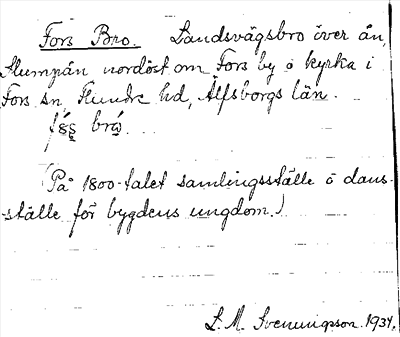 Fors Bro. Landsvägsbro över ån,
Slumpån nordöst om Fors by o kyrka i
Fors sn, Flundre hd, Älfsborgs län.
brω̇.
(På 1800-talet samlingsställe o dans-
ställe för bygdens ungdom.)
L. M. Svenungsson. 1934.